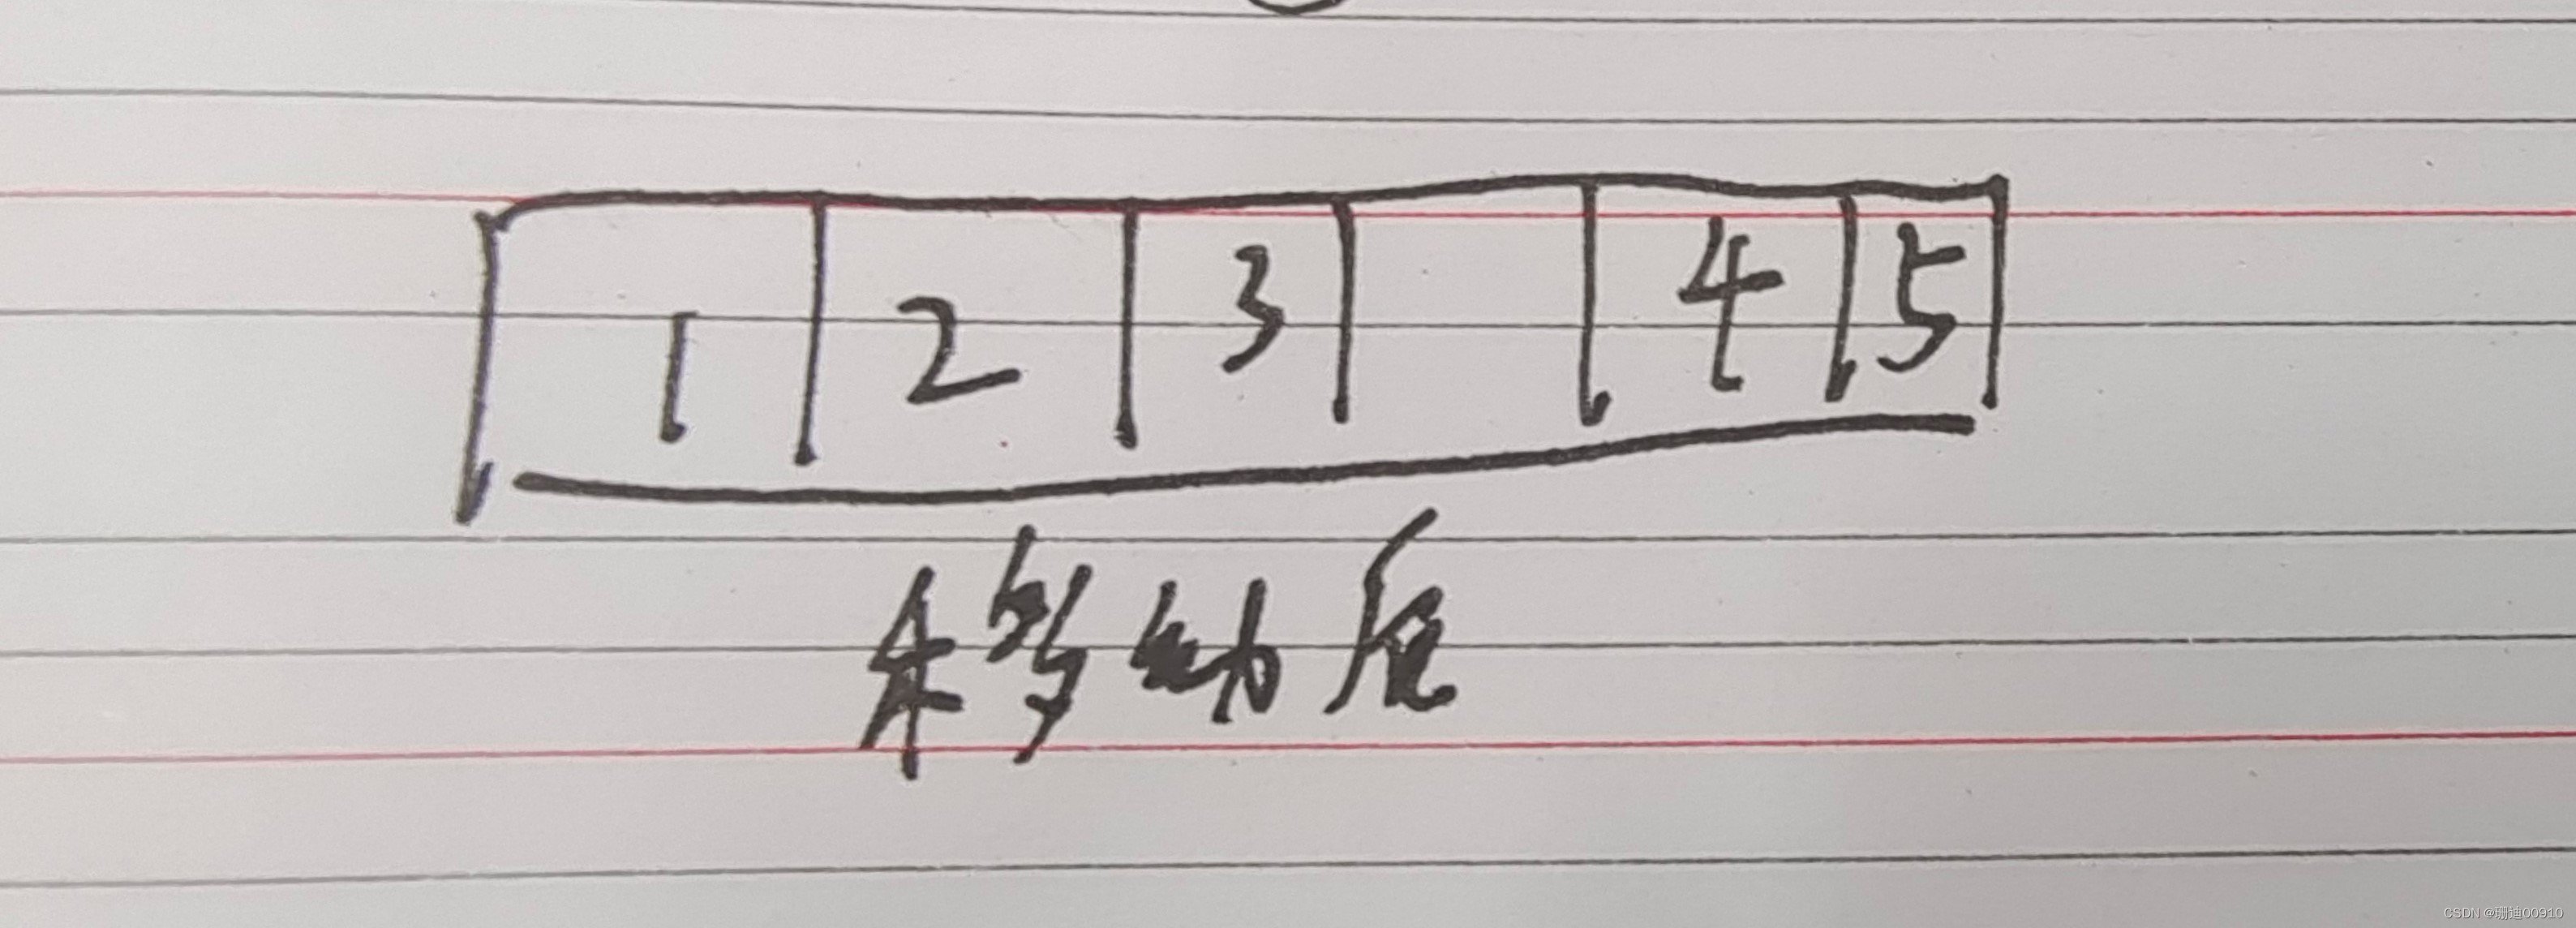 1 2 3 4 5
移动后
CSDN @珊迪00910